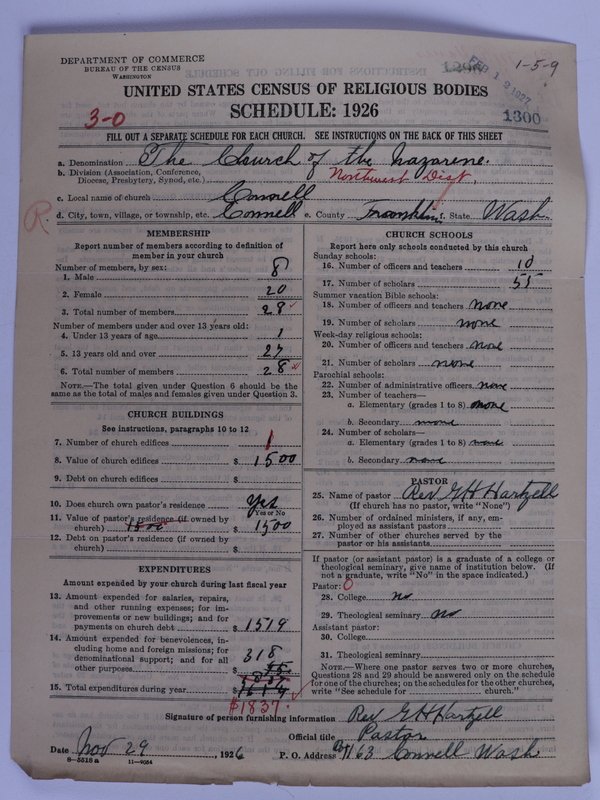 DEPARTMENT OF COMMERCE
BUREAU OF THE CENSUS
WASHINGTON
1-5-9
FEB 1 9 1927
1300
UNITED STATES CENSUS OF RELIGIOUS BODIES
SCHEDULE: 1926
3-0
FILL OUT A SEPARATE SCHEDULE FOR EACH CHURCH. SEE INSTRUCTIONS ON THE BACK OF THIS SHEET
a. Denomination The Church of the Nazarene.
b. Division (Association, Conference,
Diocese, Presbytery, Synod, etc.) Northwest Dist.
c. Local name of church Connell
R. d. City, town, village, or township, etc. Connell e. County Franklin f. State Wash.
MEMBERSHIP
Report number of members according to definition of
member in your church
Number of members, by sex:
1. Male 8
2. Female 20
3. Total number of members 28
Number of members under and over 13 years old:
4. Under 13 years of age 1
5. 13 years old and over 27
6. Total number of members 28
NOTE.—The total given under Question 6 should be the
same as the total of males and females given under Question 3.
CHURCH BUILDINGS
See instructions, paragraphs 10 to 12
7. Number of church edifices 1
8. Value of church edifices $ 1500
9. Debt on church edifices $
10. Does church own pastor's residence Yes
Yes or No
11. Value of pastor's residence (if owned by
church) 1500 $ 1500
12. Debt on pastor's residence (if owned by
church) $
EXPENDITURES
Amount expended by your church during last fiscal year
13. Amount expended for salaries, repairs,
and other running expenses; for im-
provements or new buildings; and for
payments on church debt $ 1519
14. Amount expended for benevolences, in-
cluding home and foreign missions; for
denominational support; and for all
other purposes $ 318
15. Total expenditures during year $
$1837.
CHURCH SCHOOLS
Report here only schools conducted by this church
Sunday schools:
16. Number of officers and teachers 10
17. Number of scholars 55
Summer vacation Bible schools:
18. Number of officers and teachers none
19. Number of scholars none
Week-day religious schools:
20. Number of officers and teachers none
21. Number of scholars none
Parochial schools:
22. Number of administrative officers none
23. Number of teachers—
a. Elementary (grades 1 to 8) none
b. Secondary none
24. Number of scholars—
a. Elementary (grades 1 to 8) none
b. Secondary none
PASTOR
25. Name of pastor Rev G H Hartzell
(If church has no pastor, write "None")
26. Number of ordained ministers, if any, em-
ployed as assistant pastors
27. Number of other churches served by the
pastor or his assistants
If pastor (or assistant pastor) is a graduate of a college or
theological seminary, give name of institution below. (If
not a graduate, write "No" in the space indicated.)
Pastor: 0
28. College no
29. Theological seminary no
Assistant pastor:
30. College
31. Theological seminary
NOTE.—Where one pastor serves two or more churches,
Questions 28 and 29 should be answered only on the schedule
for one of the churches; on the schedules for the other churches,
write "See schedule for church."
Signature of person furnishing information Rev G H Hartzell
Official title Pastor
Date Nov 29, 1926 P. O. Address Connell Wash
8-5518 a 11-9034